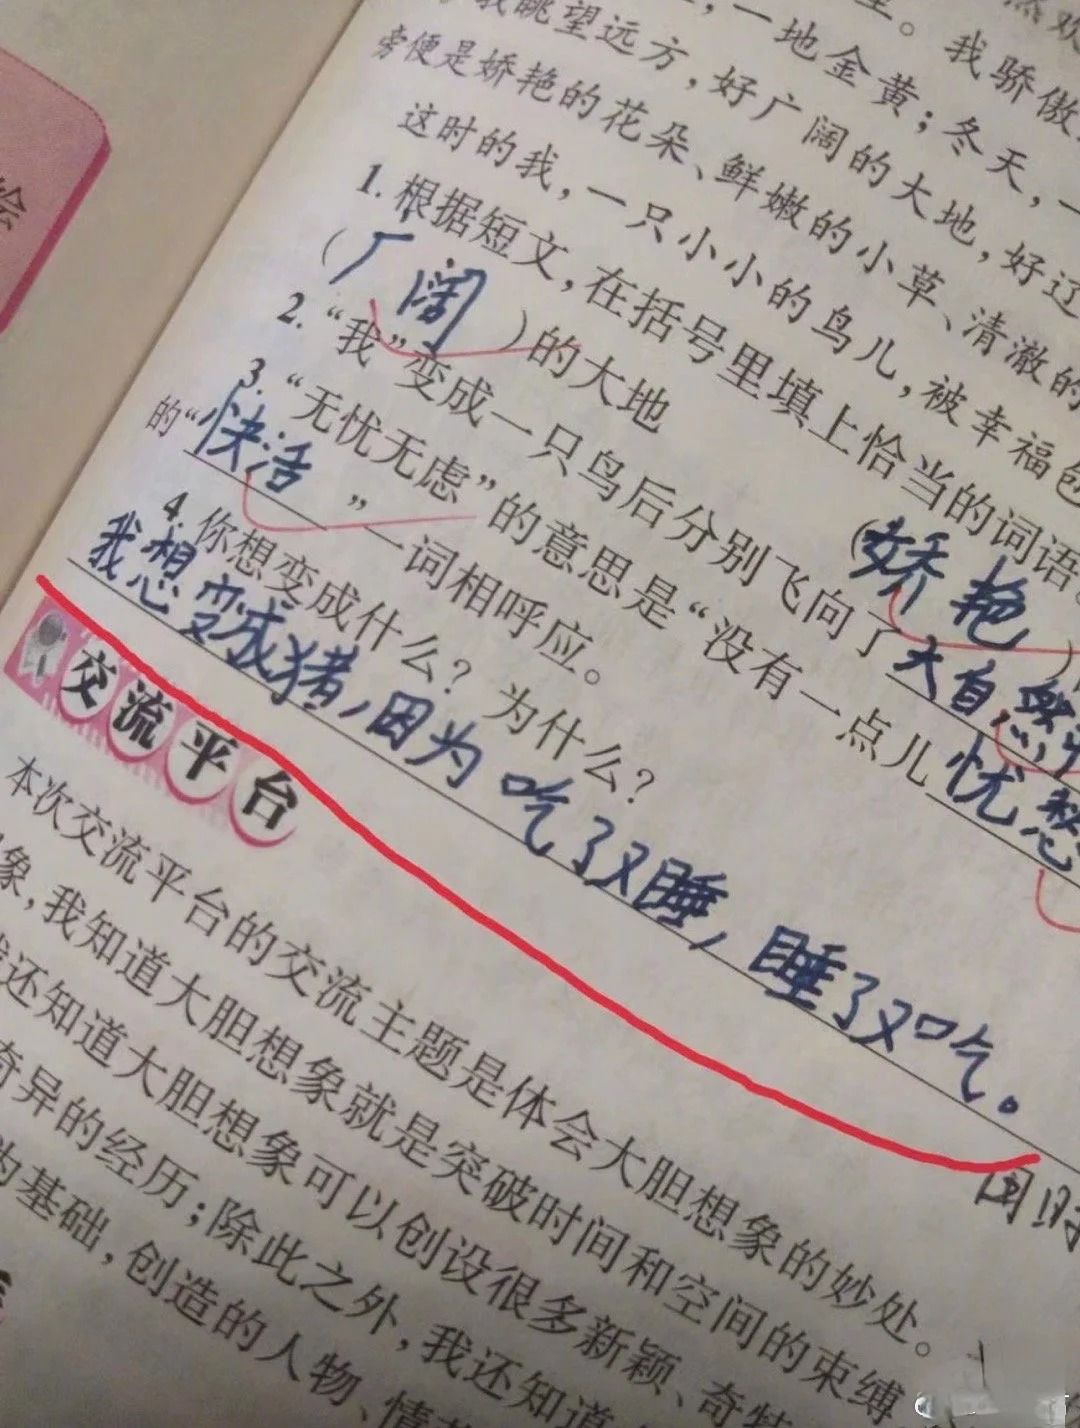 里。我骄傲
，一地金黄；冬天，一
我眺望远方，好广阔的大地，好辽
旁便是娇艳的花朵、鲜嫩的小草、清澈的
这时的我，一只小小的鸟儿，被幸福包
1. 根据短文，在括号里填上恰当的词语。
（广阔）的大地 （娇艳）
2. “我”变成一只鸟后分别飞向了大自然
3. “无忧无虑”的意思是“没有一点儿忧愁
的“快活”一词相呼应。
4. 你想变成什么？为什么？
我想变成猪，因为吃了又睡，睡了又吃。
绘
交流平台
本次交流平台的交流主题是体会大胆想象的妙处。
象，我知道大胆想象就是突破时间和空间的束缚
还知道大胆想象可以创设很多新颖、奇特
奇异的经历；除此之外，我还知道
为基础，创造的人物、情